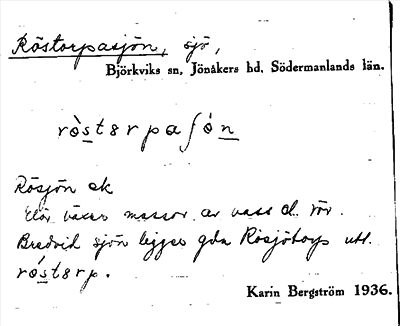 Röstorpasjön, sjö,
Björkviks sn, Jönåkers hd, Södermanlands län.
rö̀sterpaʃón
Rösjön ek
Här växer massor av vass el. rör.
Bredvid sjön ligger gda Rösjötorp utt.
rö́sterp.
Karin Bergström 1936.